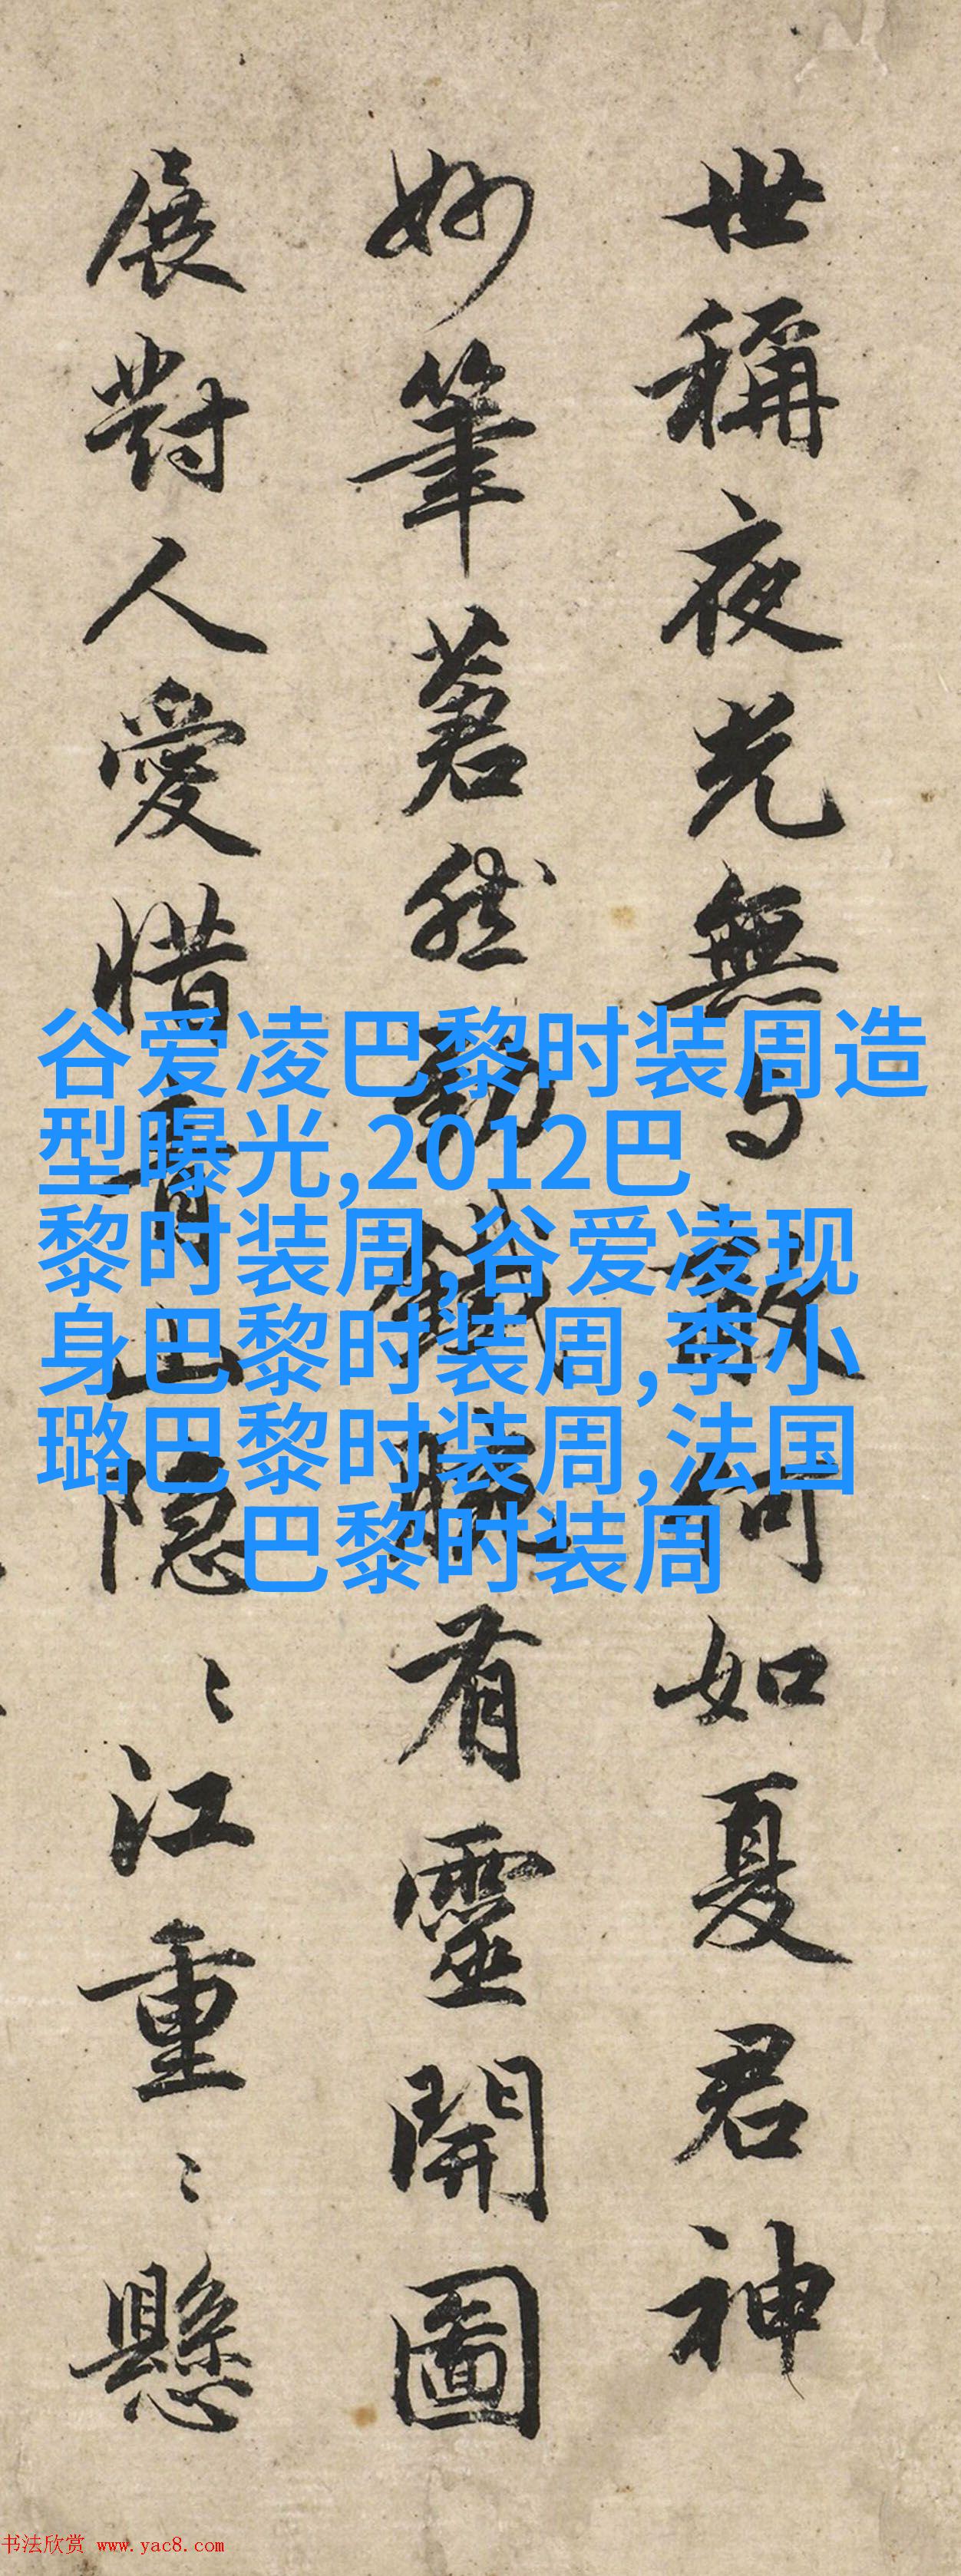 世稱夜光無与敵何如夏君神
妙筆蒼然勁鐵腕有靈開圖
展對人愛惜青山隐〻江重〻懸
谷爱凌巴黎时装周造
型曝光,2012巴
黎时装周,谷爱凌现
身巴黎时装周,李小
璐巴黎时装周,法国
巴黎时装周
书法欣赏 www.yac8.com